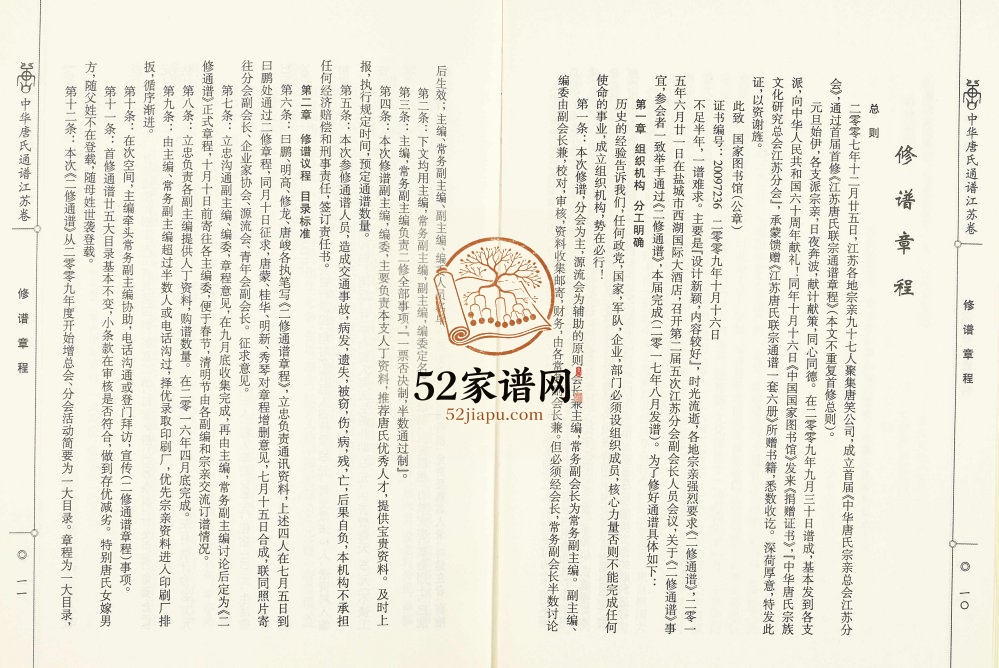 中华唐氏通谱江苏卷
修谱章程
〇一〇
修谱章程
总则
二零零七年十二月廿五日，江苏各地宗亲九十七人聚集唐笑公司，成立首届《中华唐氏宗亲总会江苏分
会》，通过首届首修《江苏唐氏联宗通谱章程》（本文不重复首修总则）。
元旦始伊，各支派宗亲，日夜奔波，献计献策，同心同德。在二零零九年九月三十日谱成，基本发到各支
派，向中华人民共和国六十周年献礼！同年十月十六日《中国国家图书馆》发来《捐赠证书》，『中华唐氏宗族
文化研究总会江苏分会』，承蒙馈赠《江苏唐氏联宗通谱一套六册》所赠书籍，悉数收讫。深荷厚意，特发此
证，以资谢旌。
此致 国家图书馆（公章）
证书编号：20097236 二零零九年十月十六日
不足半年，一谱难求。主要是『设计新颖，内容较好』，时光流逝，各地宗亲强烈要求《二修通谱》，二零一
五年六月廿一日在盐城市西湖国际大酒店，召开第二届五次江苏分会副会长人员会议，关于《二修通谱》事
宜，参会者一致举手通过《二修通谱》，本届完成（二零一七年八月发谱）。为了修好通谱具体如下：
第一章 组织机构 分工明确
历史的经验告诉我们，任何政党，国家，军队，企业，部门必须设组织成员，核心力量否则不能完成任何
使命的事业，成立组织机构，势在必行！
第一条：本次修谱，分会为主，源流会为辅助的原则，会长兼主编，常务副会长为常务副主编。副主编、
编委由副会长兼，校对，审核，资料收集邮寄，财务，由各常务副会长兼。但必须经会长，常务副会长半数讨论
后生效；主编，常务副主编、副主编、编委人员
第二条：下文均用主编，常务副主编，副主编，编委定名
第三条：主编，常务副主编负责二修全部事项，『一票否决制，半数通过制』。
第四条：本次修谱副主编，编委，主要负责本支人丁资料，推荐唐氏优秀人才，提供宝贵资料。及时上
报，执行规定时间，预定通谱数量。
第五条：本次参修通谱人员，造成交通事故，病发，遗失，被窃，伤，病，残，亡，后果自负，本机构不承担
任何经济赔偿和刑事责任，签订责任书。
第二章 修谱议程 目录标准
第六条：曰鹏，明高、修龙、唐峻各执笔写《二修通谱章程》，立忠负责通讯资料，上述四人在七月五日到
曰鹏处通过二修章程，同月十日征求，唐蒙、桂华、明新、秀琴对章程增删意见，七月十五日合成，联同照片寄
往分会副会长、企业家协会、源流会、青年会副会长。征求意见。
第七条：立忠沟通副主编、编委，章程意见，在九月底收集完成，再由主编，常务副主编讨论后定为《二
修通谱》正式章程，十月十日前寄往各主编委，便于春节，清明节由各副编和宗亲交流订谱情况。
第八条：立忠负责各副主编提供人丁资料，购谱数量。在二零一六年四月底完成。
第九条：由主编、常务副主编超过半数人或电话沟过，择优录取印刷厂，优先宗亲资料进入印刷厂排
扳，循序渐进。
第十条：在次空间，主编牵头常务副主编协助，电话沟通或登门拜访，宣传《二修通谱章程》事项。
第十一条：首修通谱廿五大目录基本不变，小条款在审核是否符合，做到存优减劣。特别唐氏女嫁男
方，随父姓不在登载，随母姓世袭登载。
第十二条：本次《二修通谱》从二零零九年度开始增总会、分会活动简要为一大目录。章程为一大目录，
中华唐氏通谱江苏卷
修谱章程
〇一一
52家谱网
52jiapu.com